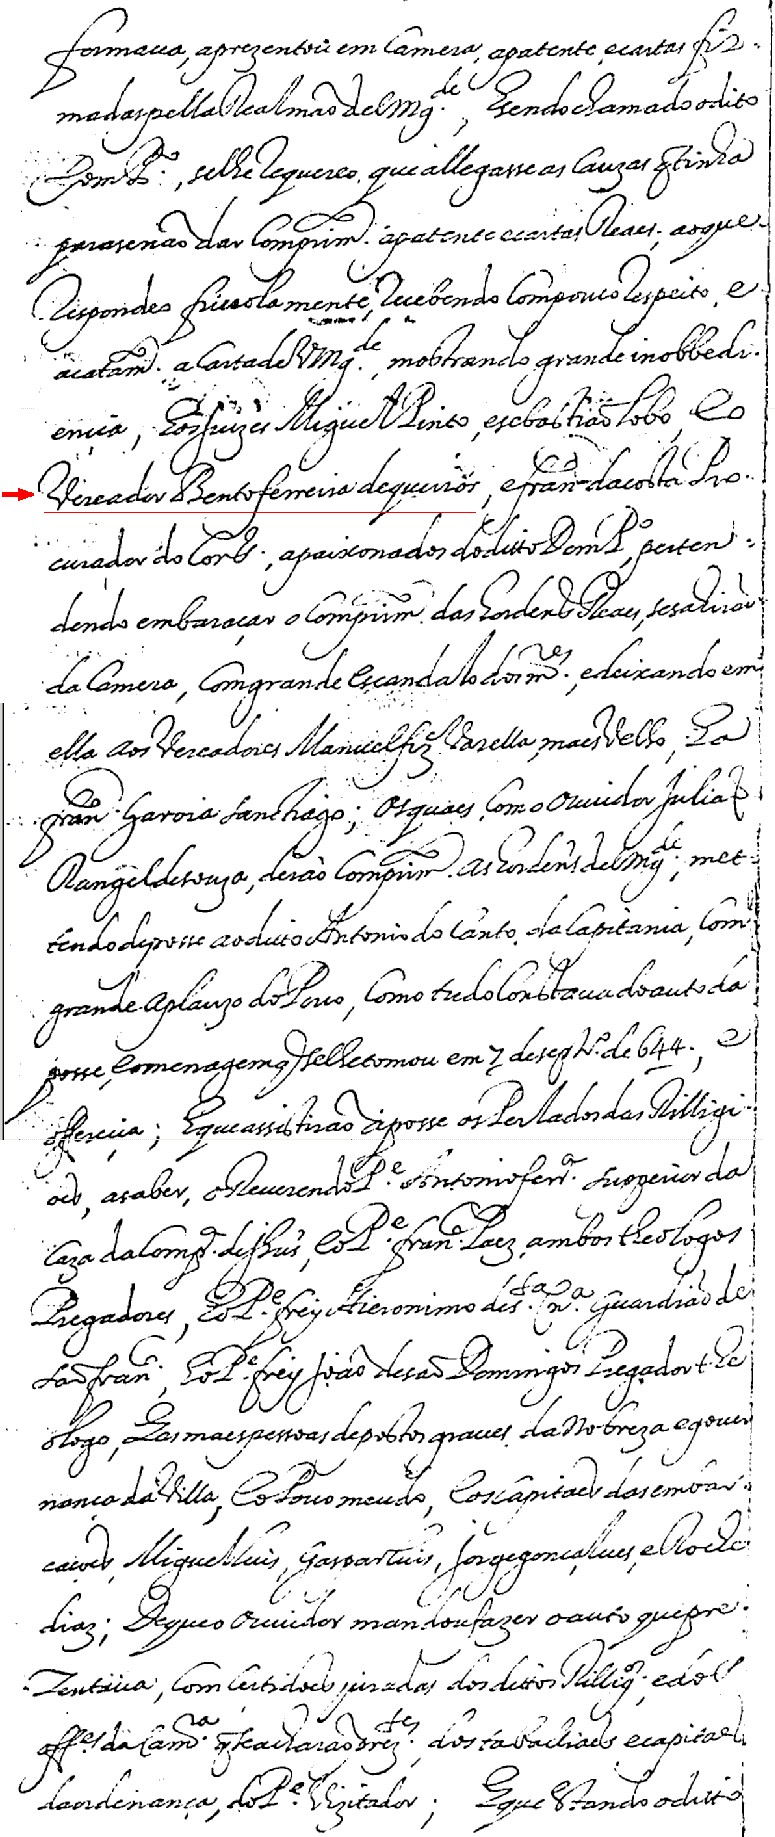 formava, aprezentou em Camera, apatente, ecartas fir-
madas pella Real mão del Mg.de, E sendo chamado o dito
Dom P.º, selhe requereo, que allegasse as Cauzas q tinha
para se não dar Comprim. apatente ecartas Reaes, aoque
Respondeo frivolamente, recebendo Com pouco respeito, e
acatam. a Carta de V Mg.de, mobtrando grande inobbedi-
encia, E os Juizes Miguel Pinto, esebastião Lobo, E o
Vereador Bento ferreira dequeiros, e fran. dacosta Pro-
curador do Cons., apaixonados do ditto Dom P.º, perten-
dendo embaraçar o Comprim. das hordens Reaes, se sairão
da Camera, Com grande Escandalo dos m.es, e deixando em
ella aos Vereadores Manuel fiz Varella, maes Velho, E a
fran. Garcia Sanchago; os quaes, Com o Ouvidor Julião
Rangel desouza, derão Comprim. as hordens del Mg.de, met-
tendo deposse ao ditto Antonio do Canto, da Capitania, Com
grande Aplauzo do Povo, Como tudo Constava do auto da
posse, Eomenagem q selletomou em 7 de sept.º de 644., e
offerecia; E que assistirão aposse os Perlados das Rilligi-
oes, a saber, o Reverendo P.e Antonio ferr.a Superior da
Caza da Comp. de Jhus, E o P.e fran. Paez, ambos theologos
Pregadores, E o P.e frey Hieronimo des.ta Cn.a Guardião de
São fran., E o P.e frey João desão Domingos Pregador the
ologo, E as maes pessoas depostos graves, da Nobreza e gover
nança da Villa, E o Povo meudo, E os Capitães das embar-
caçoes, Miguel Luis, Gaspar Luis, Jorge gonçalves, e Roche
diaz; De que o Ouvidor mandou fazer o auto que pre-
Zentava, Com Certidoes juradas dos dittos Rillig., e dos
off.es da Cam.ra q ficarão prez.tes, dos tabaliaes e capitaes
da ordenança, do P.e Vizitador; E que Estando o ditto